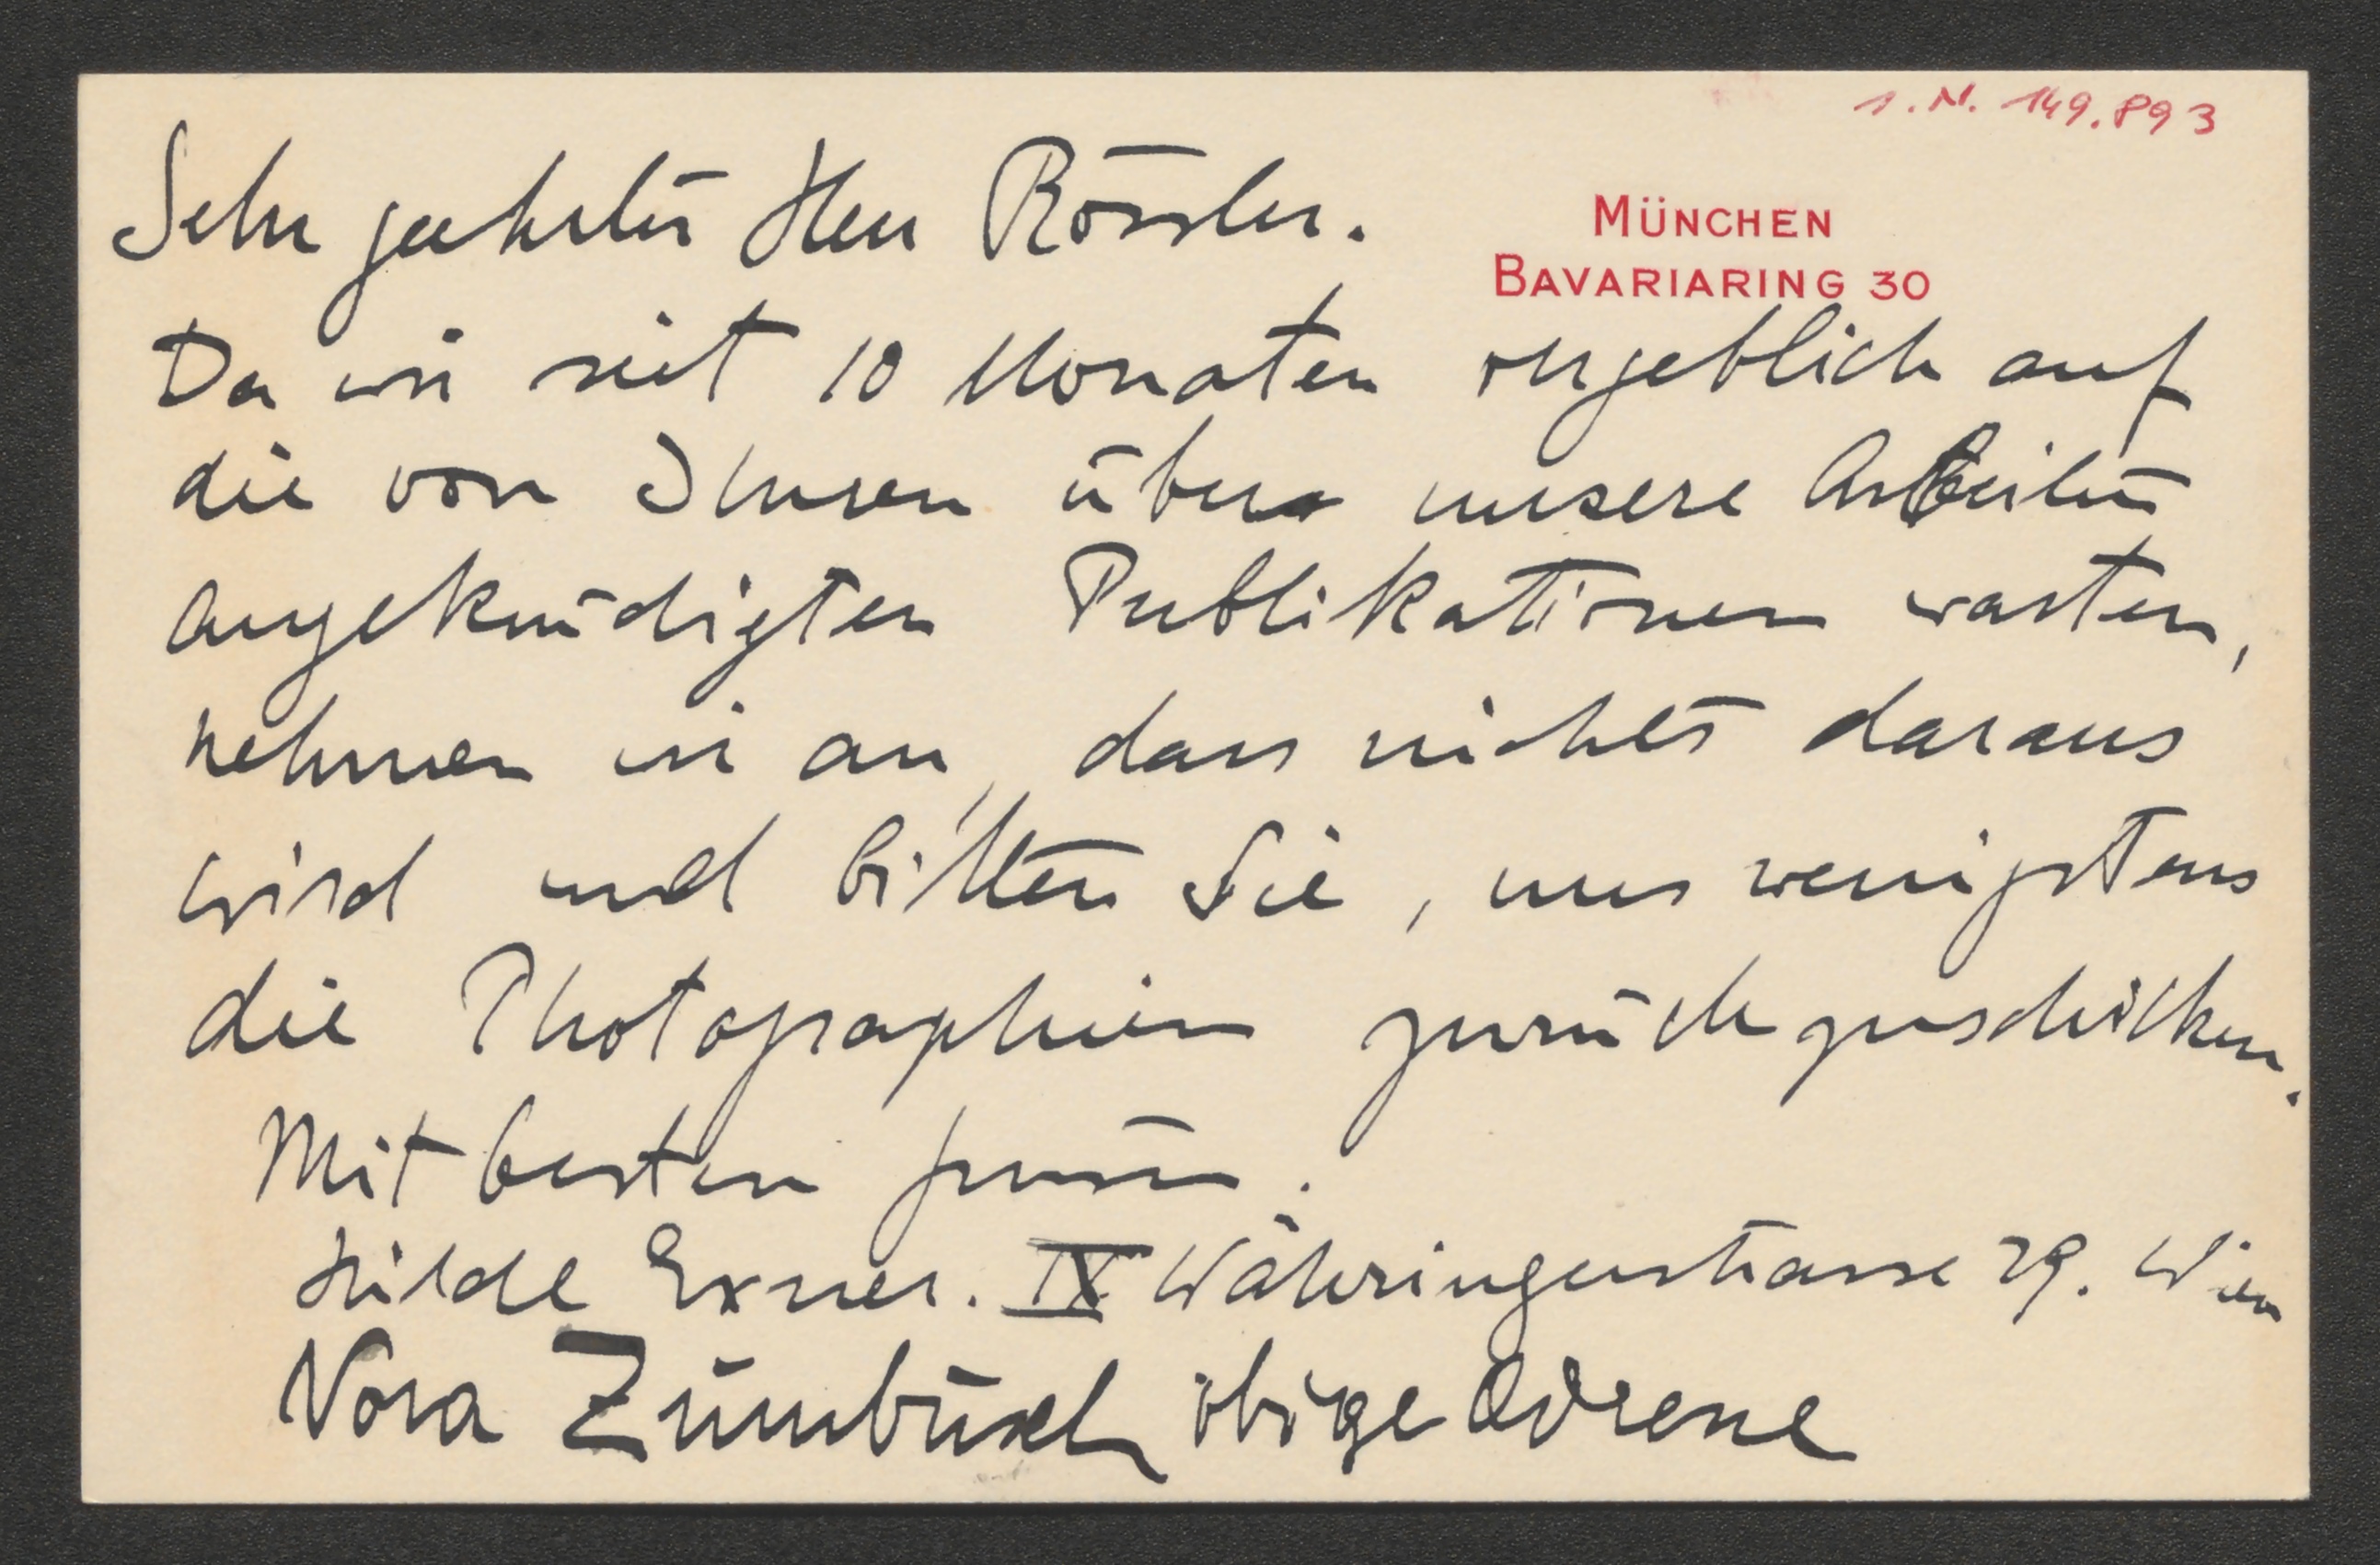 I.N. 149.893
Sehr geehrter Herr Rössler.
MÜNCHEN
BAVARIARING 30
Da wir seit 10 Monaten vergeblich auf
die von Ihnen über unsere Arbeiten
angekündigten Publikationen warten,
nehmen wir an, dass nichts daraus
wird und bitten Sie, uns wenigstens
die Photographien zurückzuschicken.
Mit besten Grüssen.
Hilde Exner. IX Währingerstrasse 29. Wien
Nora Zumbusch obige Adresse